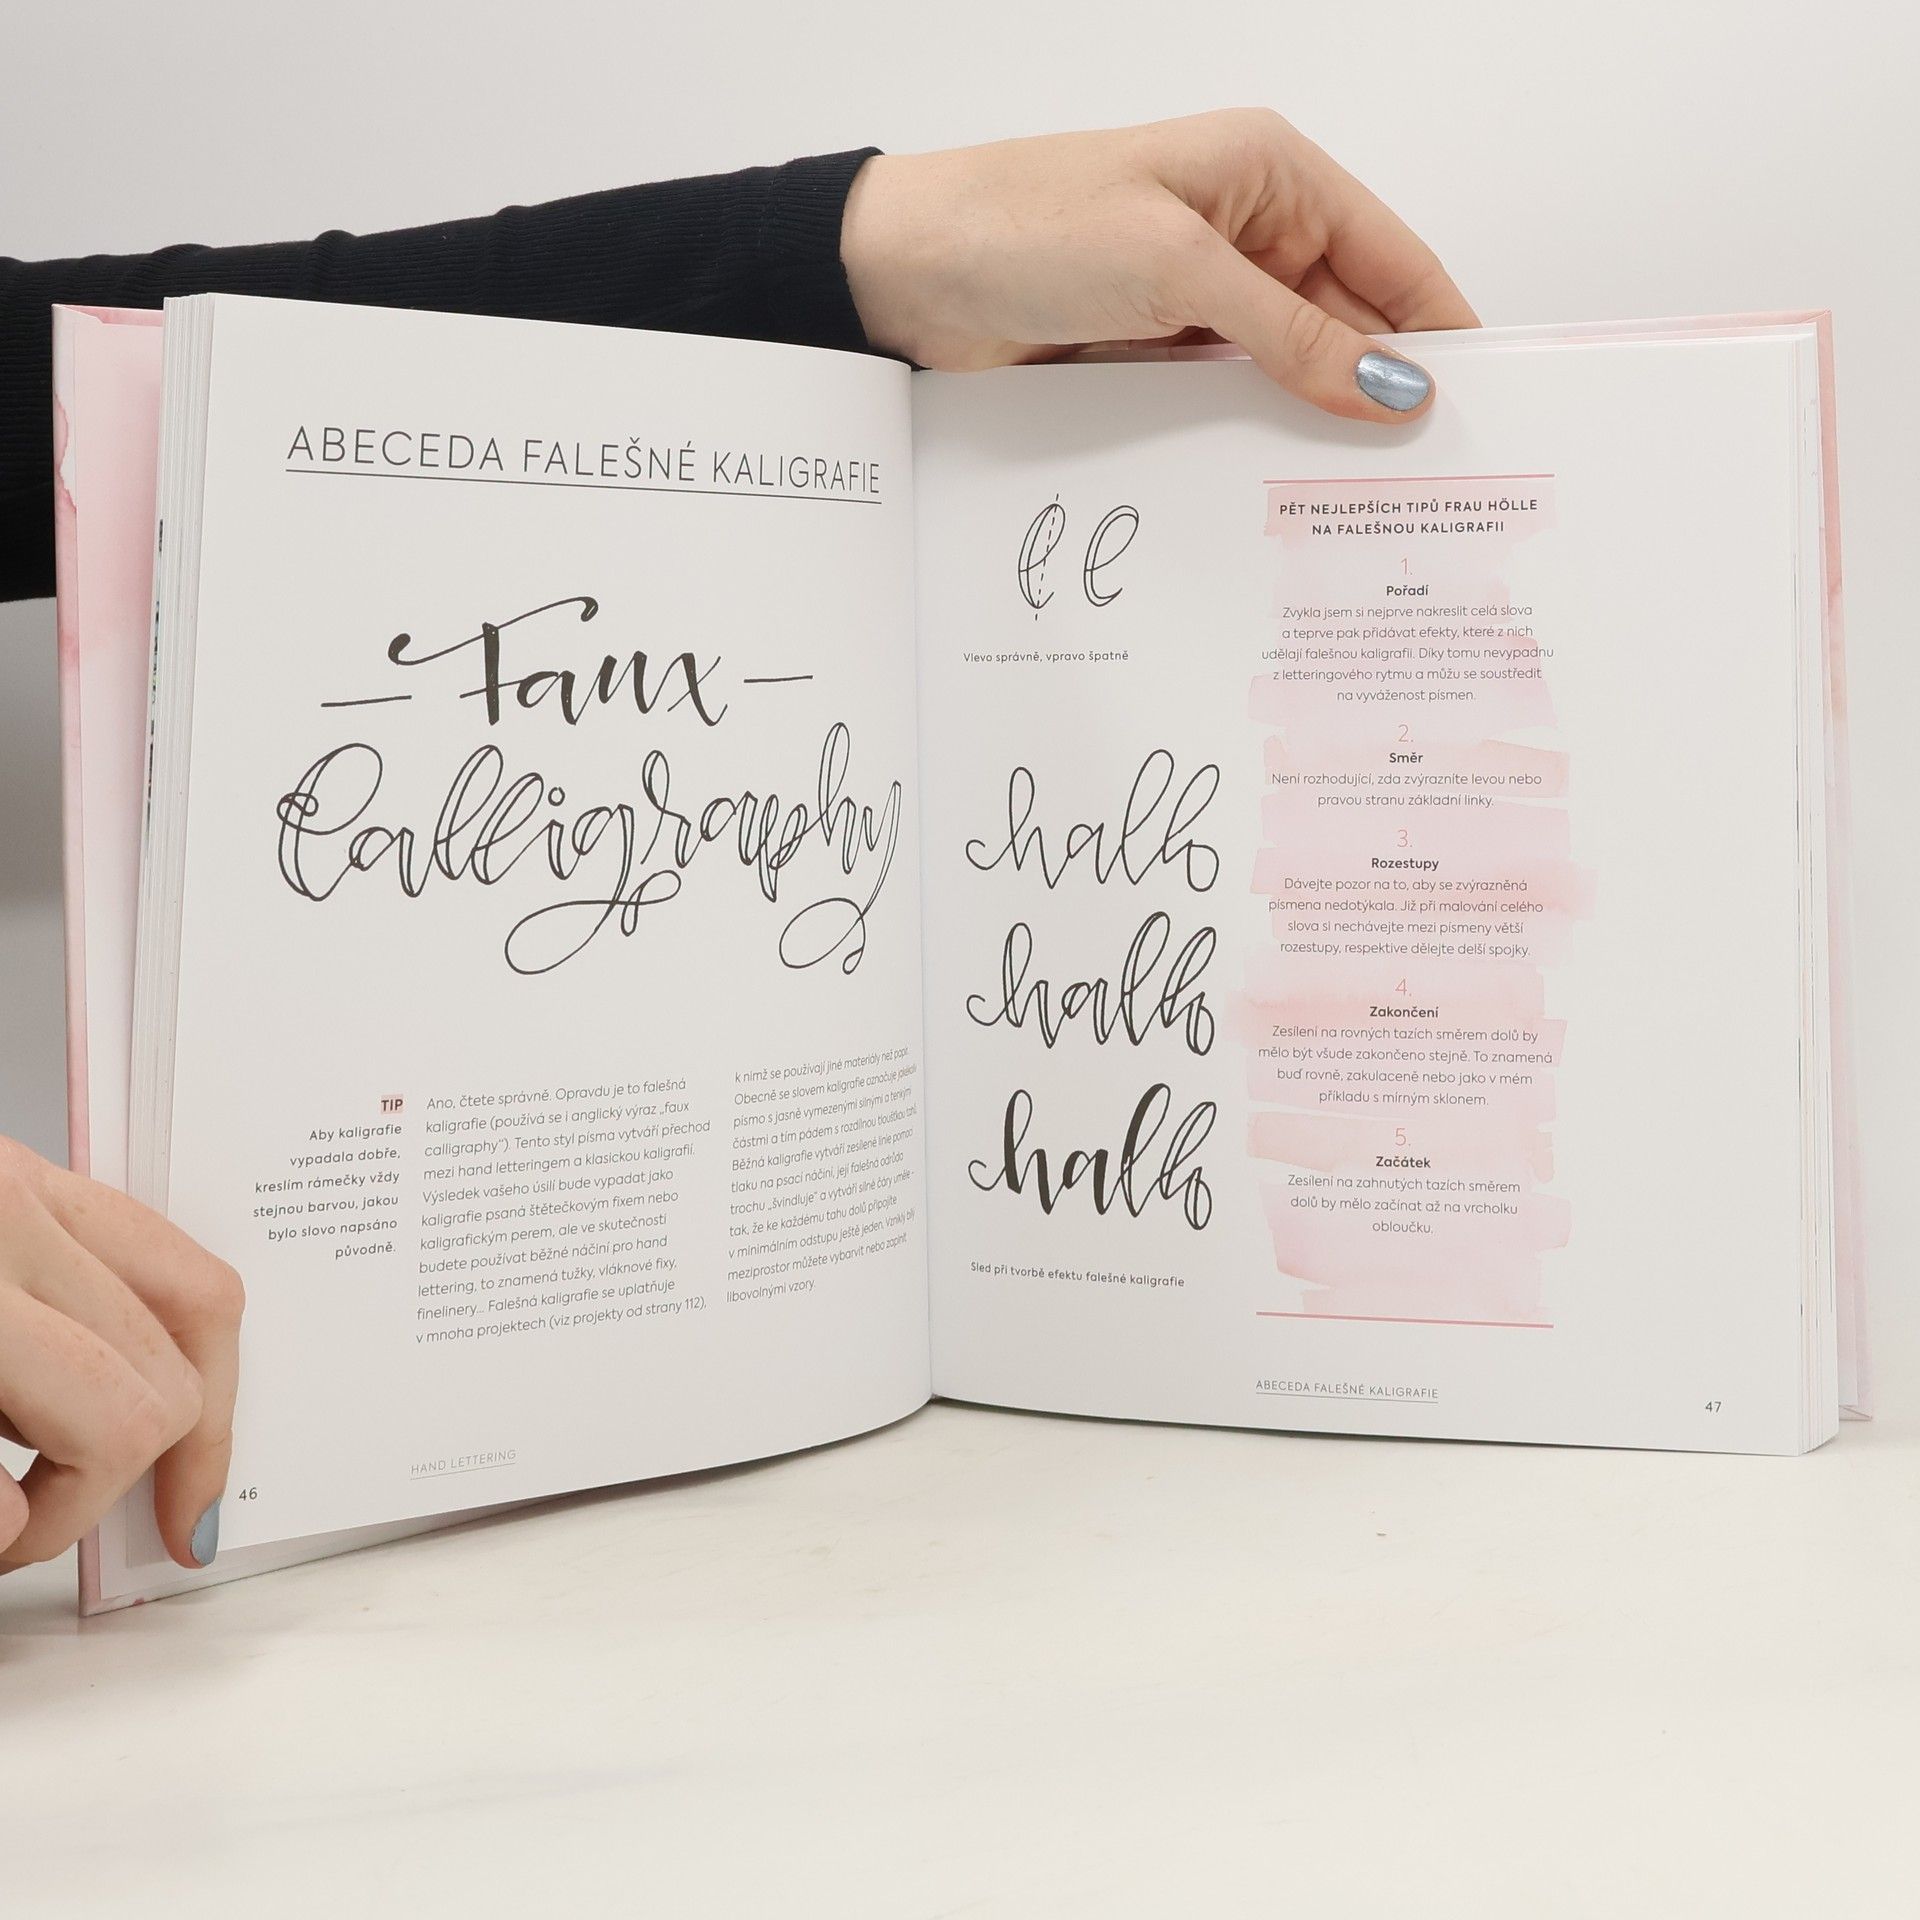 ABECEDA FALEŠNÉ KALIGRAFIE
Faux
Calligraphy
TIP
Aby kaligrafie
vypadala dobře,
kreslím rámečky vždy
stejnou barvou, jakou
bylo slovo napsáno
původně.
Ano, čtete správně. Opravdu je to falešná
kaligrafie (používá se i anglický výraz „faux
calligraphy“). Tento styl písma vytváří přechod
mezi hand letteringem a klasickou kaligrafií.
Výsledek vašeho úsilí bude vypadat jako
kaligrafie psaná štětečkovým fixem nebo
kaligrafickým perem, ale ve skutečnosti
budete používat běžné náčiní pro hand
lettering, to znamená tužky, vláknové fixy,
finelinery... Falešná kaligrafie se uplatňuje
v mnoha projektech (viz projekty od strany 112),
k nimž se používají jiné materiály než papír.
Obecně se slovem kaligrafie označuje jakékoliv
písmo s jasně vymezenými silnými a tenkými
částmi a tím pádem s rozdílnou tloušťkou tahů.
Běžná kaligrafie vytváří zesílené linie pomocí
tlaku na psací náčiní, její falešná odrůda
trochu „švindluje“ a vytváří silné čáry uměle -
tak, že ke každému tahu dolů připojíte
v minimálním odstupu ještě jeden. Vzniklý bílý
meziprostor můžete vybarvit nebo zaplnit
libovolnými vzory.
HAND LETTERING
46
l l
Vlevo správně, vpravo špatně
hallo
hallo
hallo
Sled při tvorbě efektu falešné kaligrafie
PĚT NEJLEPŠÍCH TIPŮ FRAU HÖLLE
NA FALEŠNOU KALIGRAFII
1.
Pořadí
Zvykla jsem si nejprve nakreslit celá slova
a teprve pak přidávat efekty, které z nich
udělají falešnou kaligrafii. Díky tomu nevypadnu
z letteringového rytmu a můžu se soustředit
na vyváženost písmen.
2.
Směr
Není rozhodující, zda zvýrazníte levou nebo
pravou stranu základní linky.
3.
Rozestupy
Dávejte pozor na to, aby se zvýrazněná
písmena nedotýkala. Již při malování celého
slova si nechávejte mezi písmeny větší
rozestupy, respektive dělejte delší spojky.
4.
Zakončení
Zesílení na rovných tazích směrem dolů by
mělo být všude zakončeno stejně. To znamená
buď rovně, zakulaceně nebo jako v mém
příkladu s mírným sklonem.
5.
Začátek
Zesílení na zahnutých tazích směrem
dolů by mělo začínat až na vrcholku
obloučku.
ABECEDA FALEŠNÉ KALIGRAFIE
47